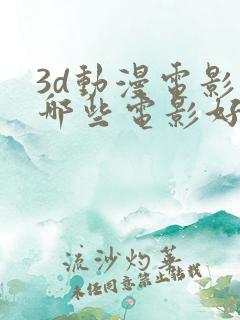 3d動漫電影
哪些電影好
流沙灼華
未經同意禁止轉載